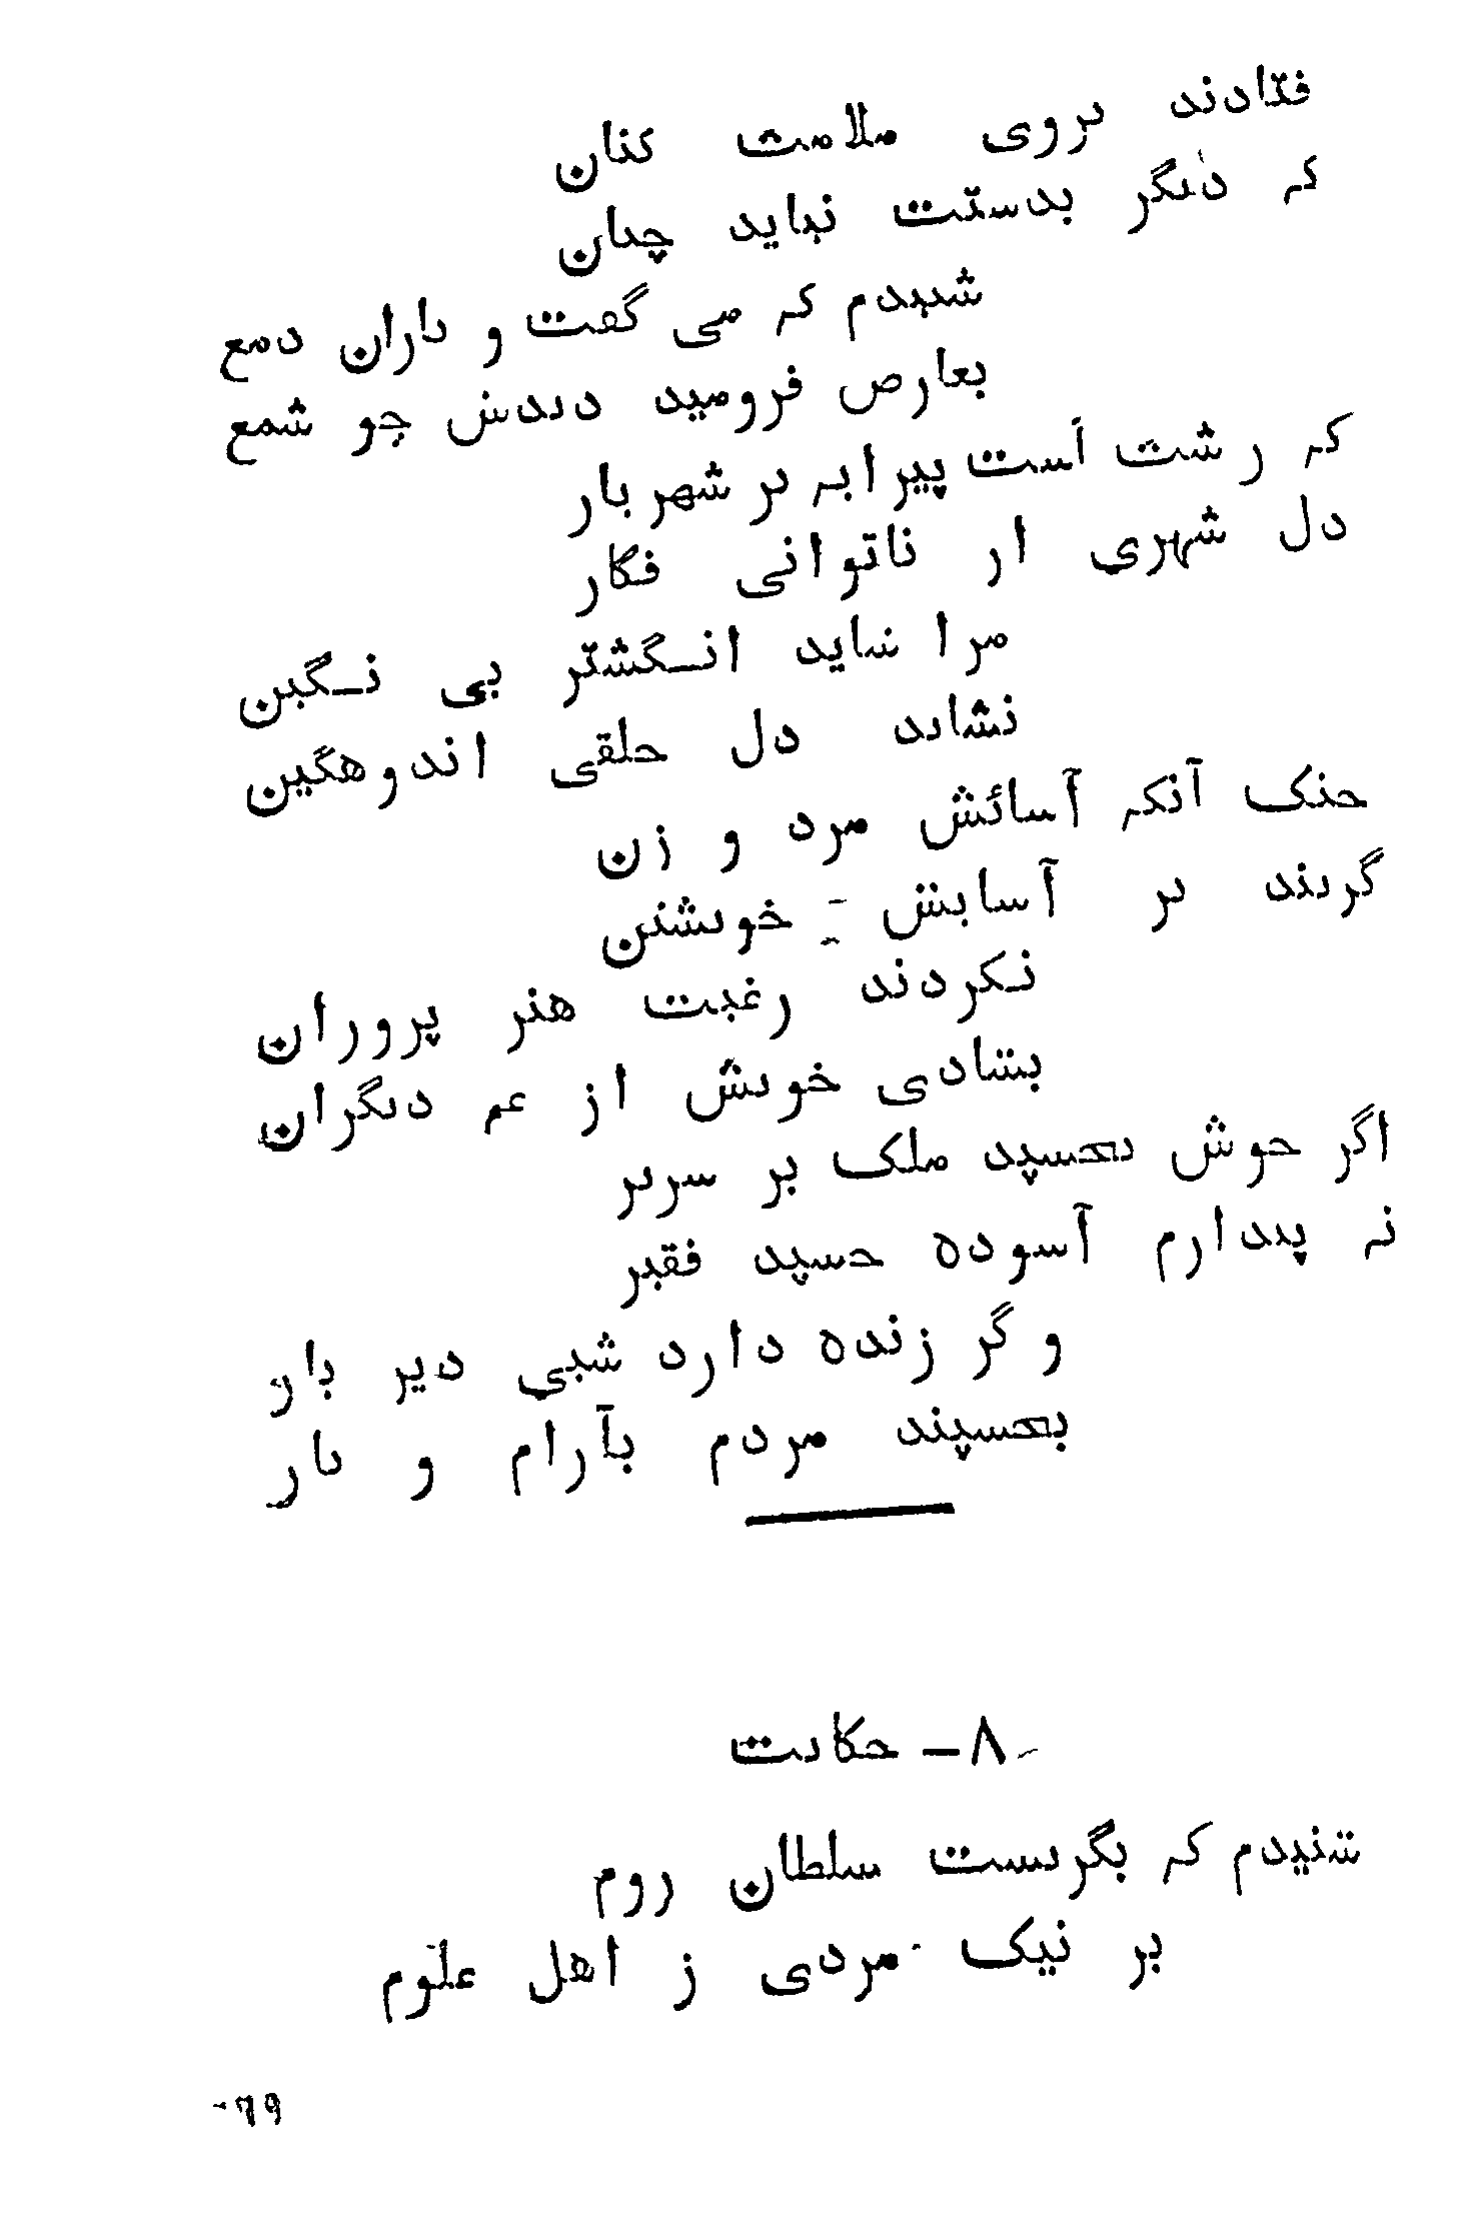 فتادند بروی ملامت کنان
که دیگر بدستت نیاید چنان
شنیدم که می گفت و باران دمع
بعارض فرومید دیدش چو شمع
که زشت است پیرایه بر شهریار
دل شهری از ناتوانی فگار
مرا شاید انـگشتر بی نـگین
نشاید دل خلقی اندوهگین
خنک آنکه آسائش مرد و زن
گزیند بر آسایش خویشتن
نـکردند رغبت هنر پروران
بشادی خویش از غم دیگران
اگر خوش بخسپد ملک بر سریر
نه پندارم آسوده خسپد فقیر
و گر زنده دارد شبی دیر باز
بخسپند مردم بآرام و ناز
۸ – حکایت
شنیدم که بگریست سلطان روم
بر نیک مردی ز اهل علوم